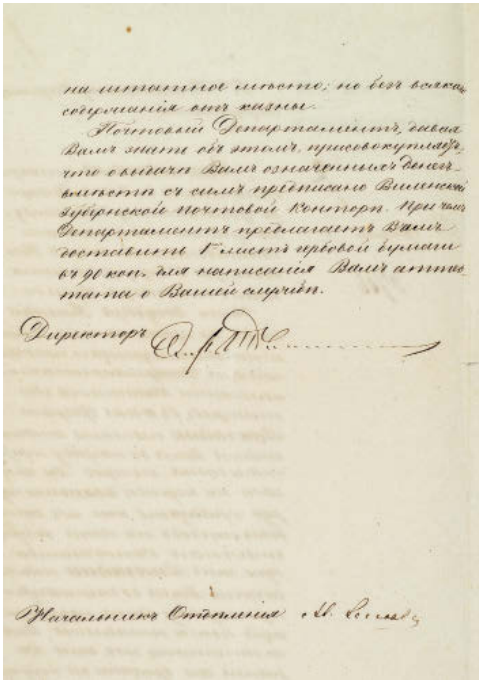 на штатное мѣсто; но безъ всякаго
содержанія отъ казны.
Почтовый Департаментъ, давая
Вамъ знать объ этомъ, присовокупляетъ,
что о выдачѣ Вамъ означенныхъ денегъ
вмѣстѣ съ симъ предписано Виленской
Губернской Почтовой Конторѣ. При чемъ
Департаментъ предлагаетъ Вамъ
доставить 1 листъ гербовой бумаги
въ 90 коп. для написанія Вамъ аттес-
тата о Вашей службѣ.
Директоръ
Начальникъ Отдѣленія